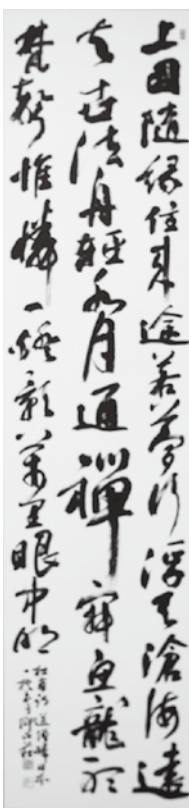 上國隨緣住來途若夢行浮天滄海遠
去世法舟輕水月通禪寂魚龍聽
梵聲惟憐一燈影萬里眼中明